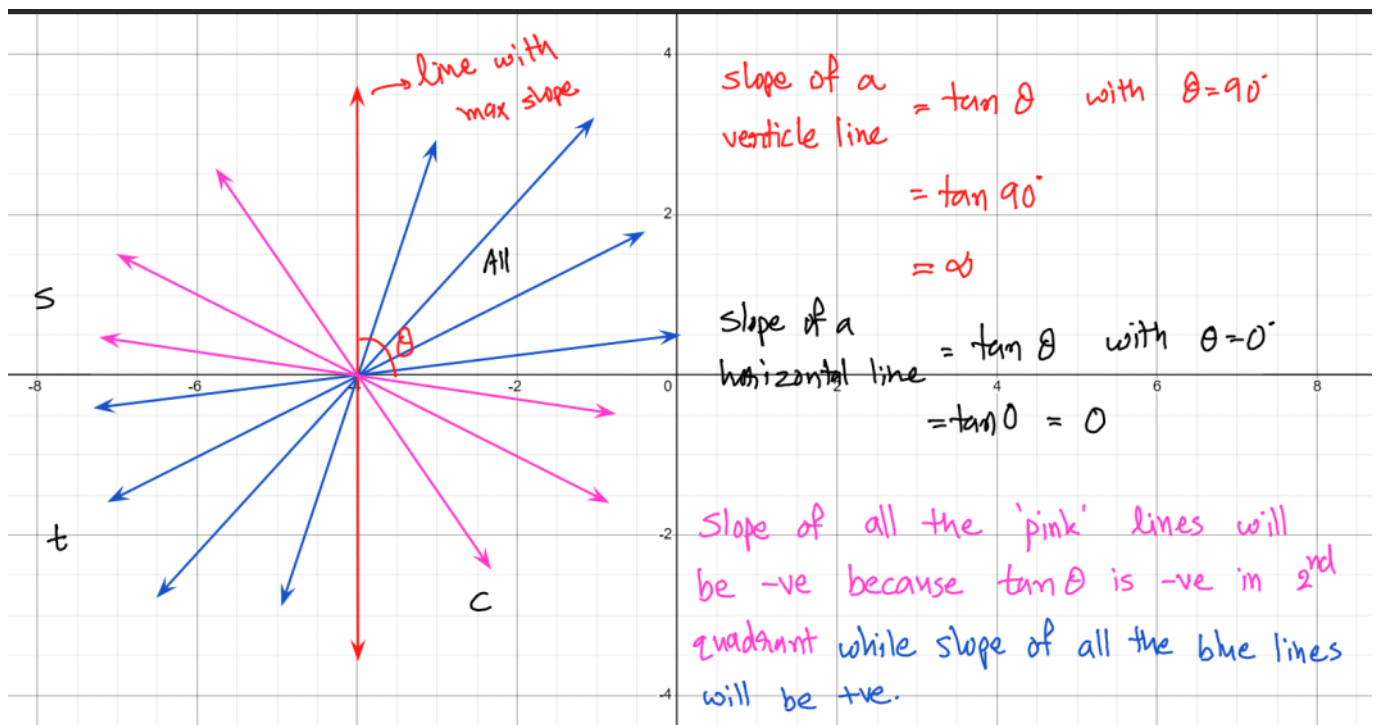 line with
max slope
All
S
t
C
θ
4
2
-2
-4
-8
-6
-4
-2
0
2
4
6
8
slope of a
verticle line
= tan θ with θ=90°
= tan 90°
= ∞
slope of a
horizontal line
= tan θ with θ=0°
=tan 0 = 0
slope of all the 'pink' lines will
be -ve because tan θ is -ve in 2nd
quadrant while slope of all the blue lines
will be +ve.